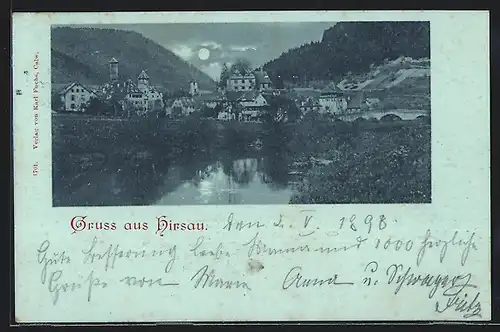 1701. Verlag von Karl Fuchs, Calw.
Gruss aus Hirsau.
den 2. V 1898
Gute Besserung liebe Emma und 1000 herzliche
Grüße von Marie Anna u. Schwager
Fritz